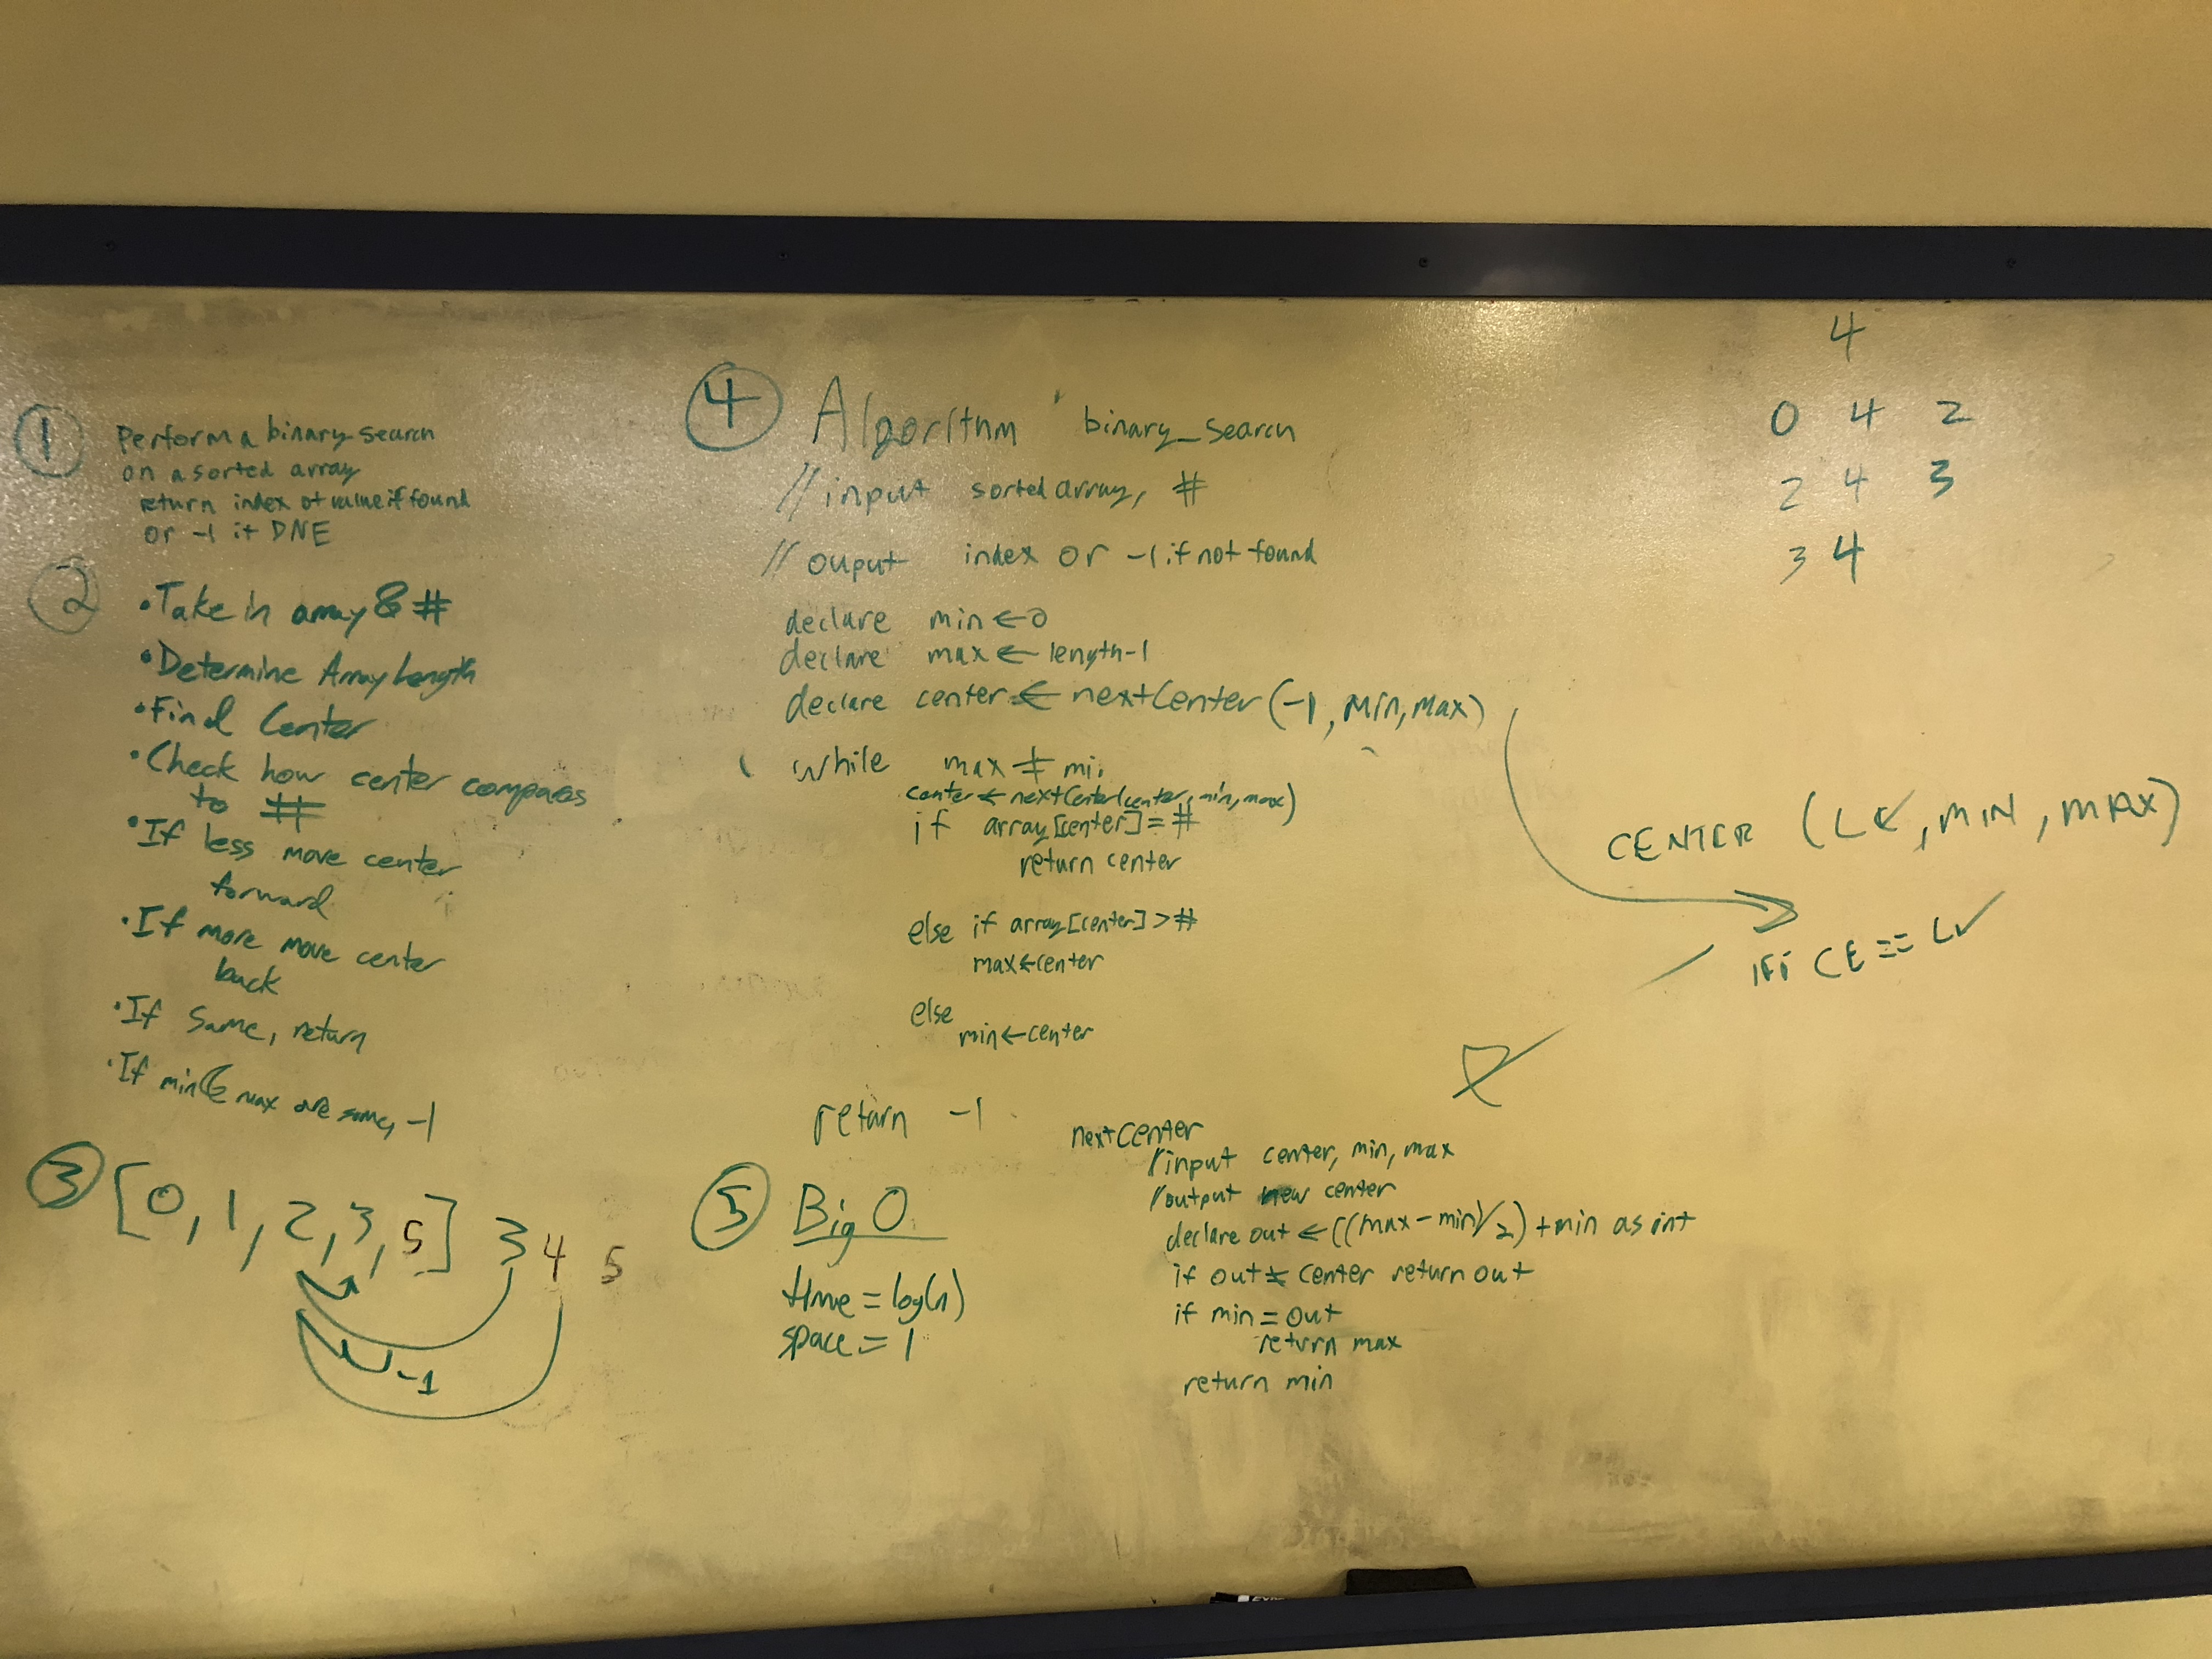 1
Perform a binary search
on a sorted array
return index of value if found
or -1 if DNE
2
• Take in array & #
• Determine Array Length
• Find Center
• Check how center compares
to #
• If less move center
forward
• If more move center
back
• If Same, return
• If min & max are same, -1
3 [0, 1, 2, 3, 5] 3 4 5
-1
4 Algorithm binary_search
// input sorted array, #
// ouput index or -1 if not found
declare min ← 0
declare max ← length-1
declare center ← nextCenter(-1, min, max)
while max ≠ mi
center ← nextCenter(center, min, max)
if array[center] = #
return center
else if array[center] > #
max ← center
else
min ← center
return -1
5 Big O
time = log(n)
space = 1
nextCenter
/input center, min, max
/output new center
declare out ← ((max - min)/2) + min as int
if out ≠ center return out
if min = out
return max
return min
4
0 4 2
2 4 3
3 4
CENTER (LC, MIN, MAX)
CE ==